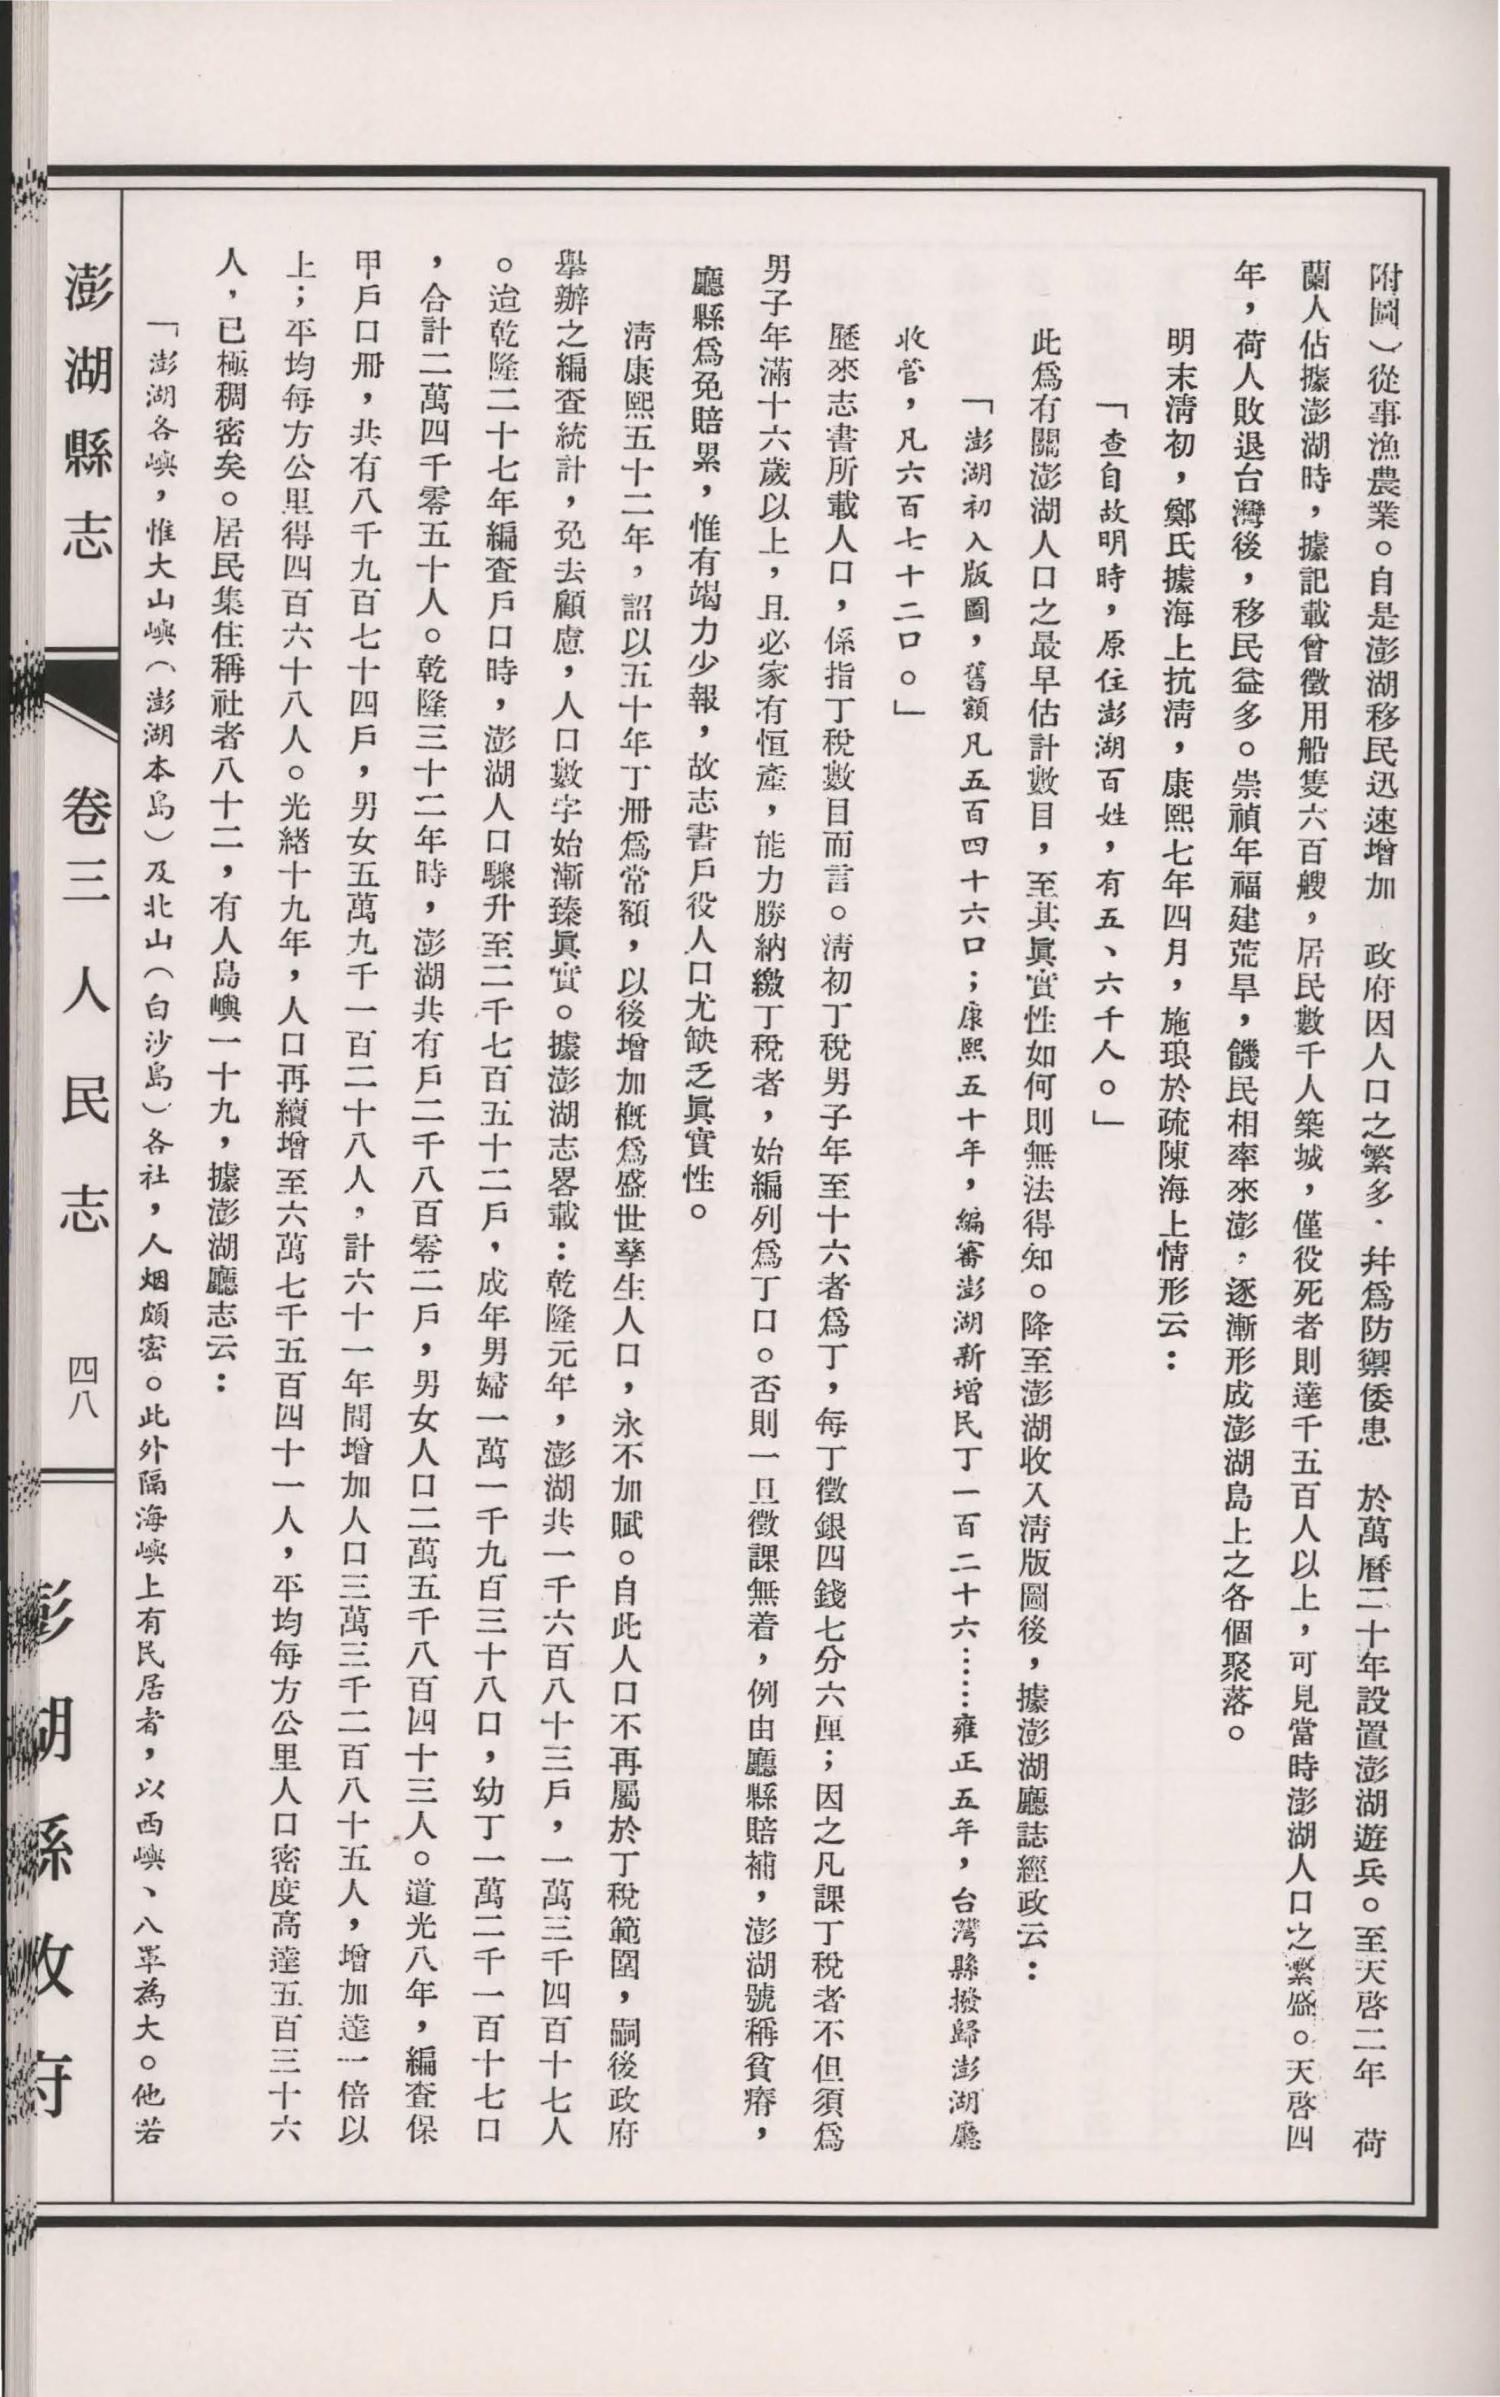 附圖）從事漁農業。自是澎湖移民迅速增加　政府因人口之繁多．幷爲防禦倭患　於萬曆二十年設置澎湖遊兵。至天啓二年　荷
蘭人佔據澎湖時，據記載曾徵用船隻六百艘，居民數千人築城，僅役死者則達千五百人以上，可見當時澎湖人口之繁盛。天啓四
年，荷人敗退台灣後，移民益多。崇禎年福建荒旱，饑民相率來澎，逐漸形成澎湖島上之各個聚落。
明末淸初，鄭氏據海上抗淸，康熙七年四月，施琅於疏陳海上情形云：
「查自故明時，原住澎湖百姓，有五、六千人。」
此爲有關澎湖人口之最早估計數目，至其眞實性如何則無法得知。降至澎湖收入淸版圖後，據澎湖廳誌經政云：
「澎湖初入版圖，舊額凡五百四十六口；康熙五十年，編審澎湖新增民丁一百二十六……雍正五年，台灣縣撥歸澎湖廳
收管，凡六百七十二口。」
歷來志書所載人口，係指丁稅數目而言。淸初丁稅男子年至十六者爲丁，每丁徵銀四錢七分六厘；因之凡課丁稅者不但須爲
男子年滿十六歲以上，且必家有恒產，能力勝納繳丁稅者，始編列爲丁口。否則一旦徵課無着，例由廳縣賠補，澎湖號稱貧瘠，
廳縣爲免賠累，惟有竭力少報，故志書戶役人口尤缺乏眞實性。
淸康熙五十二年，詔以五十年丁册爲常額，以後增加概爲盛世孳生人口，永不加賦。自此人口不再屬於丁稅範圍，嗣後政府
舉辦之編查統計，免去顧慮，人口數字始漸臻眞實。據澎湖志畧載：乾隆元年，澎湖共一千六百八十三戶，一萬三千四百十七人
。迨乾隆二十七年編查戶口時，澎湖人口驟升至二千七百五十二戶，成年男婦一萬一千九百三十八口，幼丁一萬二千一百十七口
，合計二萬四千零五十人。乾隆三十二年時，澎湖共有戶二千八百零二戶，男女人口二萬五千八百四十三人。道光八年，編查保
甲戶口册，共有八千九百七十四戶，男女五萬九千一百二十八人，計六十一年間增加人口三萬三千二百八十五人，增加達一倍以
上；平均每方公里得四百六十八人。光緒十九年，人口再續增至六萬七千五百四十一人，平均每方公里人口密度高達五百三十六
人，已極稠密矣。居民集住稱社者八十二，有人島嶼一十九，據澎湖廳志云：
「澎湖各嶼，惟大山嶼（澎湖本島）及北山（白沙島）各社，人烟頗密。此外隔海嶼上有民居者，以西嶼、八罩為大。他若
澎湖縣志
卷三人民志
四八
澎湖縣政府